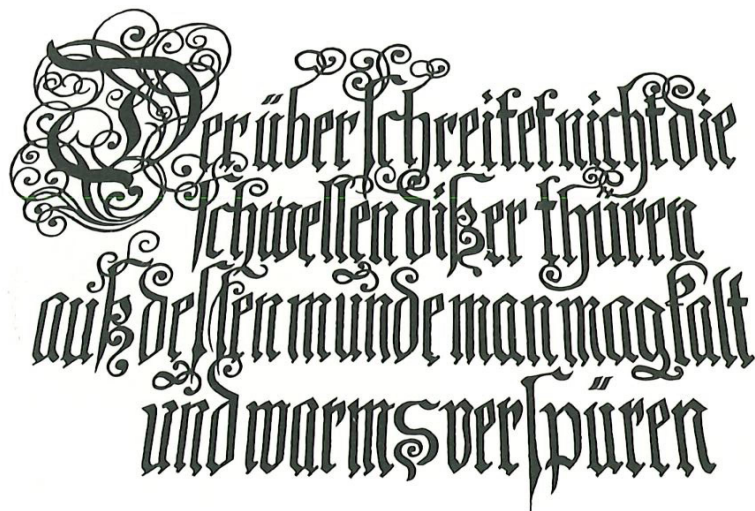 Der überschreitet nicht die
schwellen dißer thüren
auß dessen munde man mag kalt
und warms verspüren